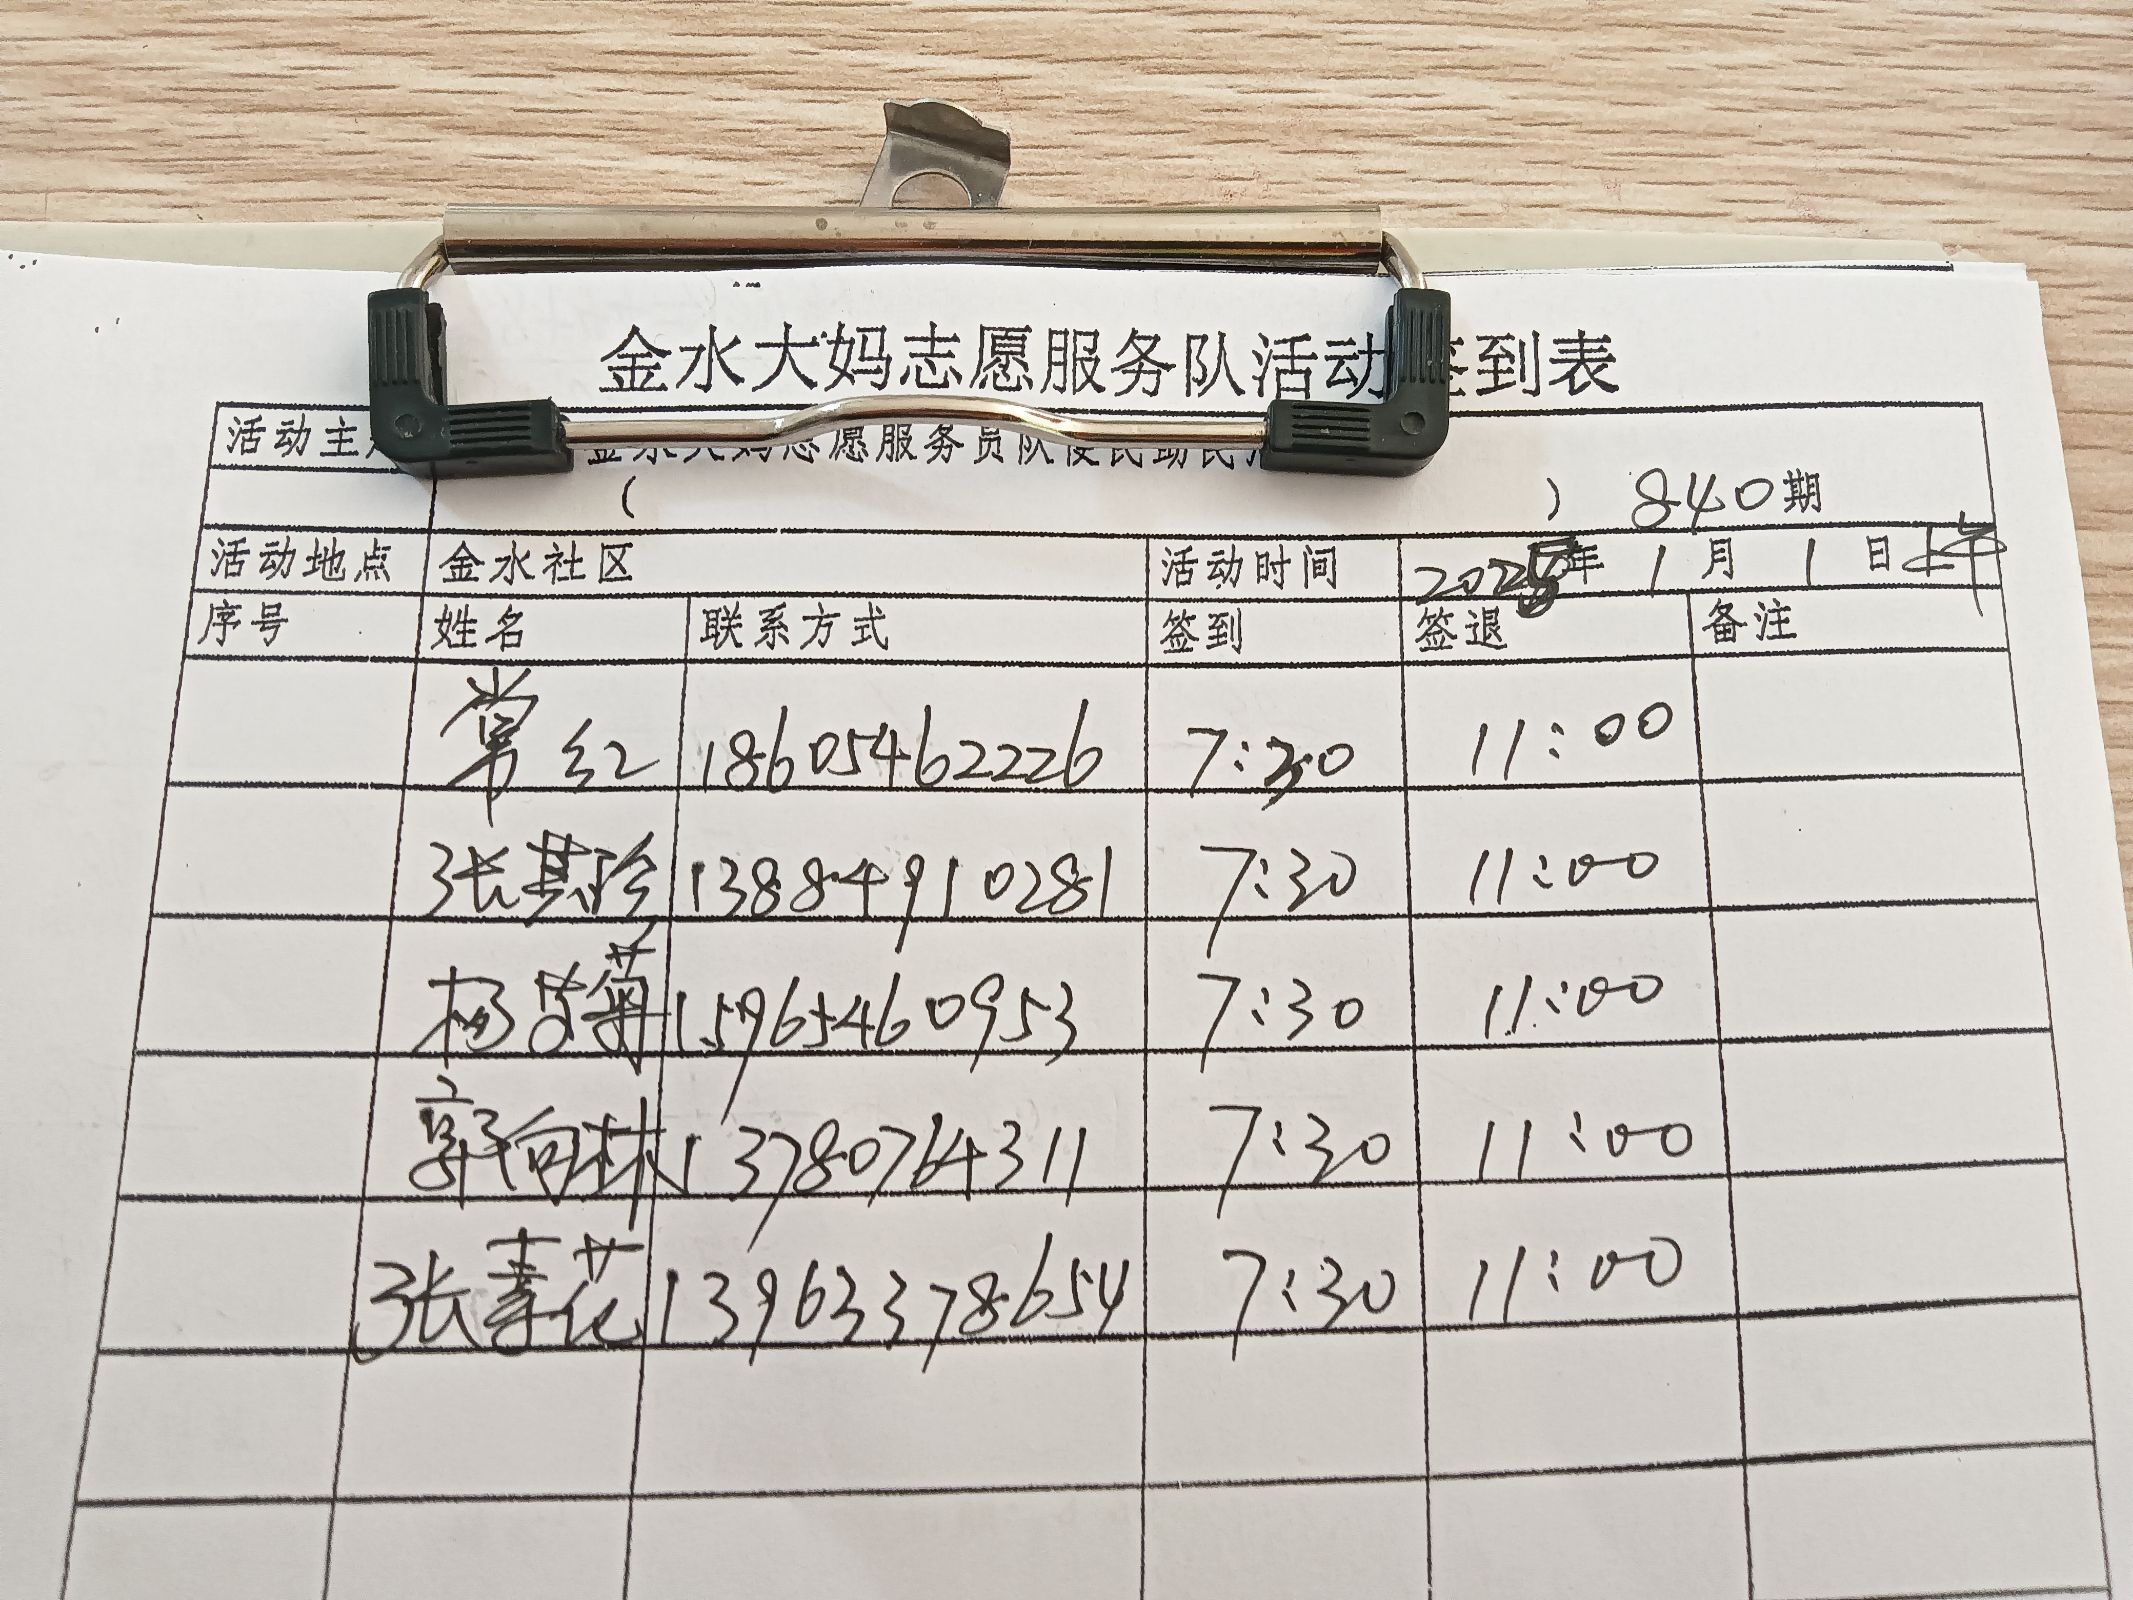 金水大妈志愿服务队活动签到表
活动主 金水大妈志愿服务员队便民助民
( ) 840期
活动地点 金水社区 活动时间 2025年1月1日上午
序号 姓名 联系方式 签到 签退 备注
常红 18605462226 7:30 11:00
张其珍 13884910281 7:30 11:00
杨艾菊 15965460953 7:30 11:00
郭向林 13780764311 7:30 11:00
张春花 13963378654 7:30 11:00